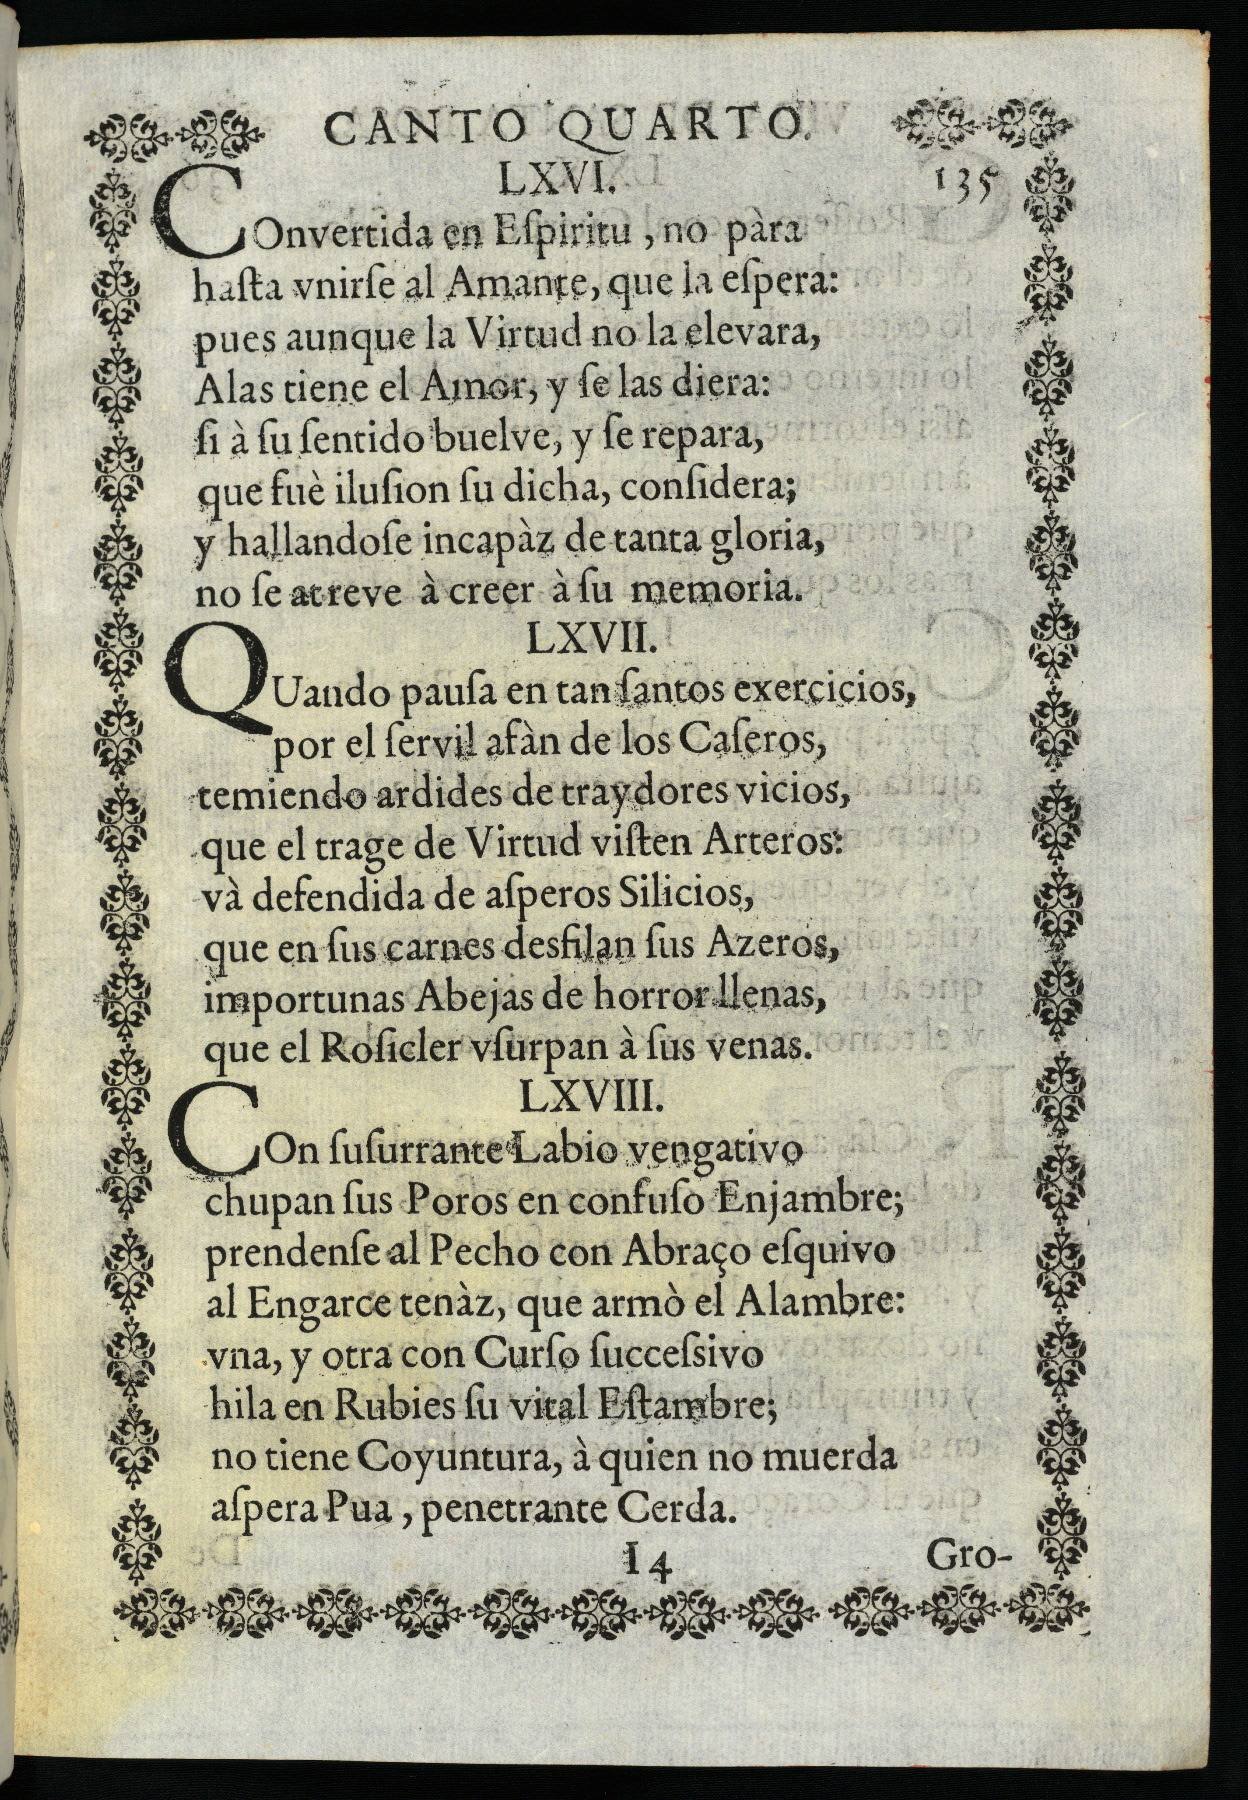 CANTO QUARTO.
135
LXVI.
COnvertida en Eſpiritu, no pàra
haſta vnirſe al Amante, que la eſpera:
pues aunque la Virtud no la elevara,
Alas tiene el Amor, y ſe las diera:
ſi à ſu ſentido buelve, y ſe repara,
que fuè iluſion ſu dicha, conſidera;
y hallandoſe incapàz de tanta gloria,
no ſe atreve à creer à ſu memoria.
LXVII.
QUando pauſa en tan ſantos exercicios,
por el ſervil afàn de los Caſeros,
temiendo ardides de traydores vicios,
que el trage de Virtud viſten Arteros:
và defendida de aſperos Silicios,
que en ſus carnes desfilan ſus Azeros,
importunas Abejas de horror llenas,
que el Roſicler vſurpan à ſus venas.
LXVIII.
COn ſuſurrante Labio vengativo
chupan ſus Poros en confuſo Enjambre;
prendenſe al Pecho con Abraço eſquivo
al Engarce tenàz, que armò el Alambre:
vna, y otra con Curſo ſucceſsivo
hila en Rubies ſu vital Eſtambre;
no tiene Coyuntura, à quien no muerda
aſpera Pua, penetrante Cerda.
I4
Gro-